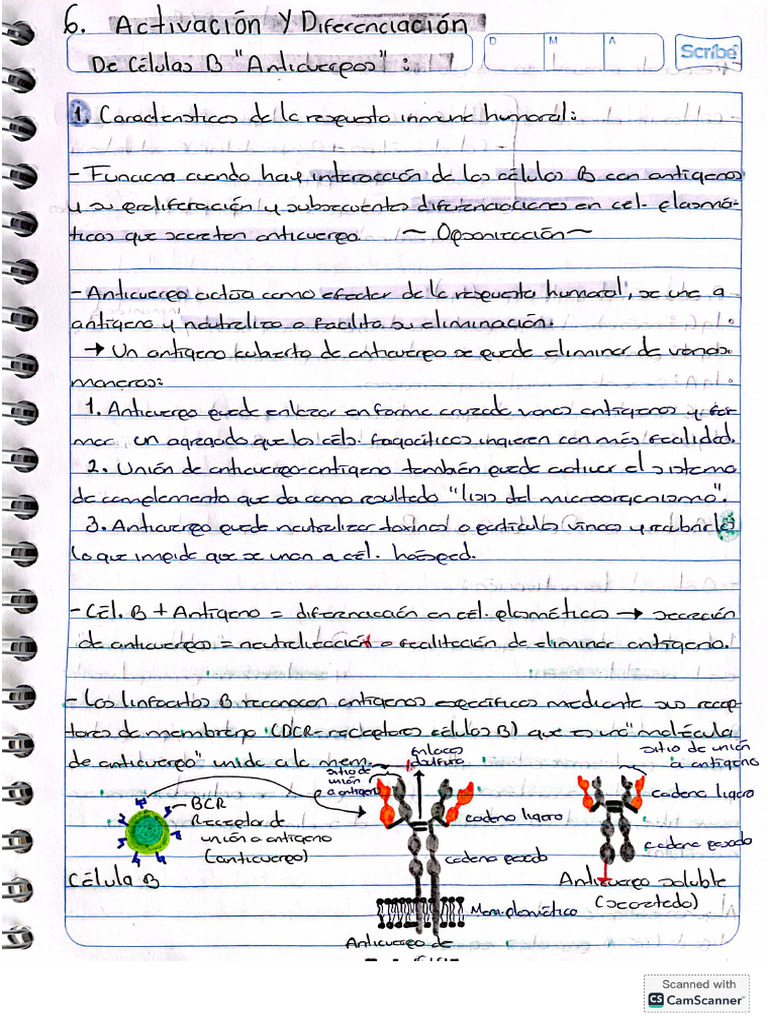 6. Activación y Diferenciación
D M A
Scribe
De Células B "Anticuerpos":
1. Características de la respuesta inmune humoral:
- Funciona cuando hay interacción de las células B con antígenos
y su proliferación y subsecuentes diferenciaciones en cel. plasmá-
ticas que secreten anticuerpo. ~ Opsonización ~
- Anticuerpo actúa como efector de la respuesta humoral, se une a
antígeno y neutraliza o facilita su eliminación.
→ Un antígeno cubierto de anticuerpo se puede eliminar de varias
maneras:
1. Anticuerpo puede enlazar en forma cruzada varios antígenos y for
mar, un agregado que las céls. fagocíticas ingieren con más facilidad.
2. Unión de anticuerpo-antígeno también puede activar el sistema
de complemento que da como resultado "lisis del microorganismo".
3. Anticuerpo puede neutralizar toxinas o partículas virales y recubrirlas
lo que impide que se unan a cél. huésped.
- Cél. B + Antígeno = diferenciación en cél. plasmáticas → secreción
de anticuerpos = neutralización o facilitación de eliminar antígeno.
- Los linfocitos B reconocen antígenos específicos mediante sus recep-
tores de membrana (BCR-receptores células B) que es una "molécula
de anticuerpo" unida a la mem.
enlaces
disulfuro
sitio de unión
a antígeno
sitio de
unión
a antígeno
BCR
Receptor de
unión a antígeno
(anticuerpo)
cadena ligera
cadena pesada
cadena ligera
cadena pesada
Célula B
Anticuerpo soluble
(secretado)
Mem. plasmática
Anticuerpo de
Scanned with
CS CamScanner